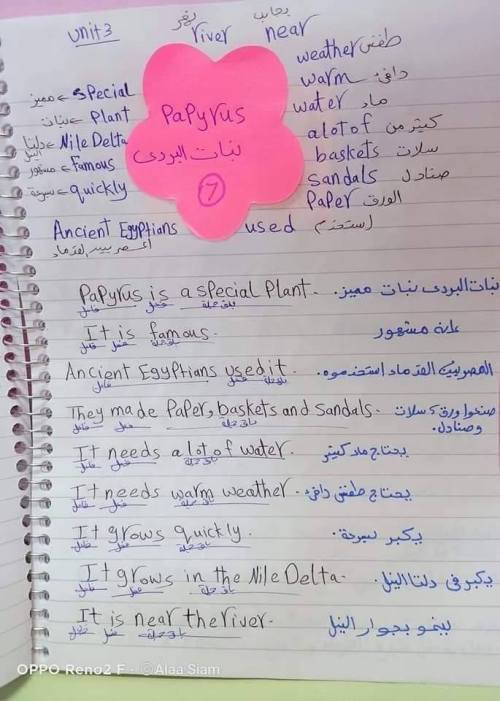 unit 3
نهر river
بجانب near
weather طقس
warm دافئ
water ماء
a lot of كثير من
baskets سلات
sandals صنادل
Paper الورق
used استخدم
special مميز
Plant نبات
Nile Delta دلتا النيل
Famous مشهور
quickly بسرعة
Ancient Egyptians
Papyrus
نبات البردى
7
Papyrus is a special Plant. نبات البردى نبات مميز.
فاعل فعل باقى جملة
It is famous. مشهور
فاعل فعل باقى جملة
Ancient Egyptians used it. استخدموه.
فاعل فعل
They made Paper, baskets and sandals. صنعوا ورق، سلات
وصنادل.
فاعل فعل باقى جملة
It needs a lot of water. يحتاج ماء كثير
فاعل فعل باقى جملة
It needs warm weather. يحتاج طقس دافئ
فاعل فعل باقى جملة
It grows quickly. يكبر بسرعة.
فاعل فعل باقى جملة
It grows in the Nile Delta. يكبر فى دلتا النيل.
فاعل فعل باقى جملة
It is near the river. ينمو بجوار النيل
فاعل فعل باقى جملة
OPPO Reno2 F · ©Alaa Siam